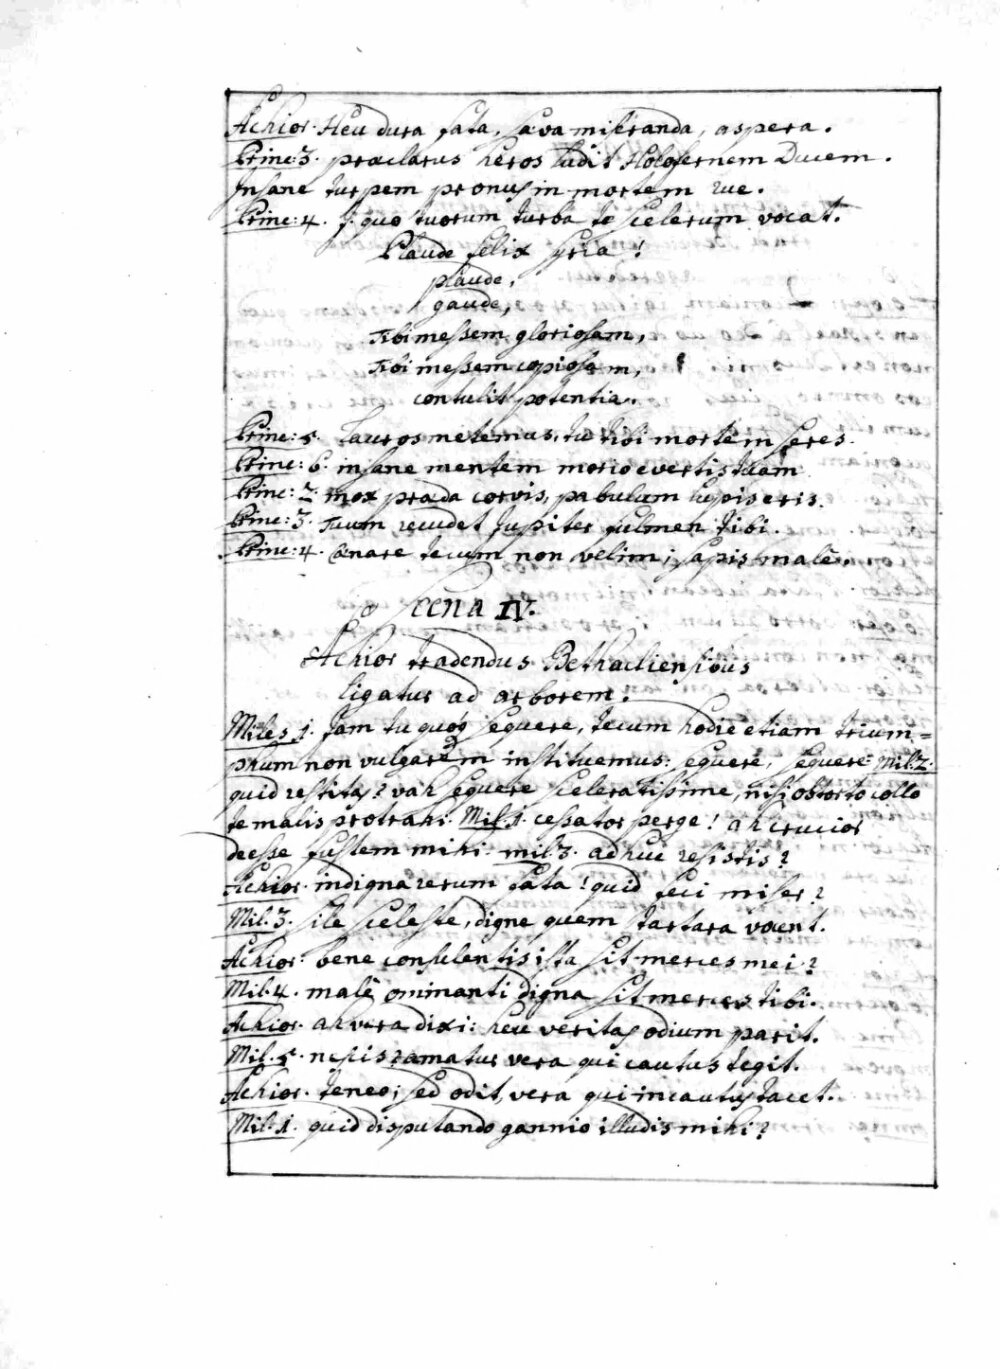 Achior. Heu dura fata, sæva miseranda, aspera.
Princ: 3. præclarus heros ludit Holofernem Ducem.
Insane turpem pronus in mortem rue.
Princ: 4. I, quo tuorum turba te scelerum vocat.
Plaude felix Syria!
plaude,
gaude,
Tibi messem gloriosam,
Tibi messem copiosam,
contulit potentia.
Princ: 5. Lauros metemus, tu tibi mortem seres.
Princ: 6. insane mentem morio evertis tuam
Princ: 2. mox præda corvis, pabulum lupis eris.
Princ: 3. Tuum recudet Jupiter fulmen tibi.
Princ: 4. Cænare tecum non velim; sapis malè.
Scena IV.
Achior tradendus Bethaeliensibus
ligatus ad arborem.
Miles 1. Jam tu quoq sequere, tecum hodie etiam trium=
phum non vulgarem instituemus: sequere, sequere Mil: 2.
quid restitas? vah sequere sceleratissime, nisi obtorto collo
te mavis protrahi. Mil. 1. cessator perge! ah crucior
deesse fustem mihi. mil. 3. adhuc resistis?
Achior. indigna rerum fata! quid feci miser?
Mil. 3. sile sceleste, digne quem tartara vocent.
Achior. bene consulentis ista sit merces mei?
Mil. 4. malè ominanti digna sit merces tibi.
Achior. ah vera dixi: heu veritas odium parit.
Mil. 5. nescis? amatur vera qui cautus tegit.
Achior. teneo; sed odit, vera qui incautus tacet.
Mil. 1. quid disputando gannio illudis mihi?